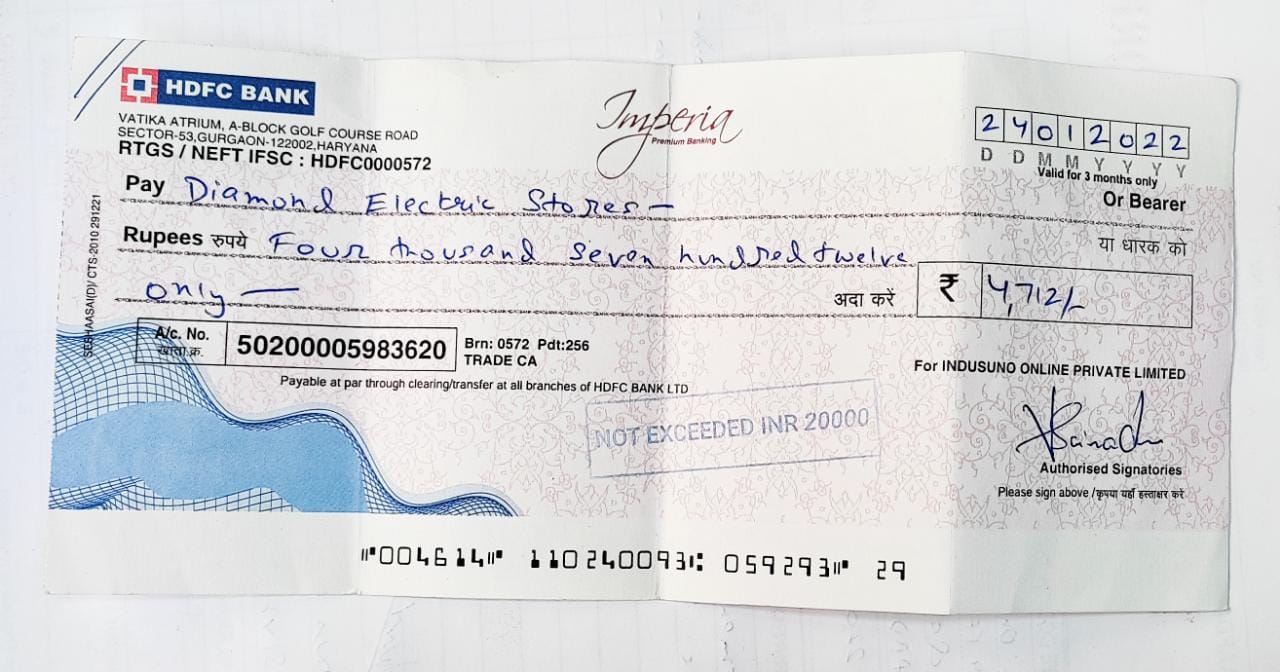 HDFC BANK
VATIKA ATRIUM, A-BLOCK GOLF COURSE ROAD
SECTOR-53,GURGAON-122002,HARYANA
RTGS / NEFT IFSC : HDFC0000572
Imperia
Premium Banking
24012022
D D M M Y Y Y Y
Valid for 3 months only
Pay Diamond Electric Stores —
Or Bearer
या धारक को
Rupees रुपये Four thousand seven hundred twelve
only —
अदा करें ₹ 4,712/-
A/c. No.
खाता क्र.
50200005983620
Brn: 0572 Pdt:256
TRADE CA
Payable at par through clearing/transfer at all branches of HDFC BANK LTD
NOT EXCEEDED INR 20000
For INDUSUNO ONLINE PRIVATE LIMITED
Authorised Signatories
Please sign above /कृपया यहाँ हस्ताक्षर करें
CTS-2010 291221
⑈004614⑈ 110240093⑆ 059293⑈ 29